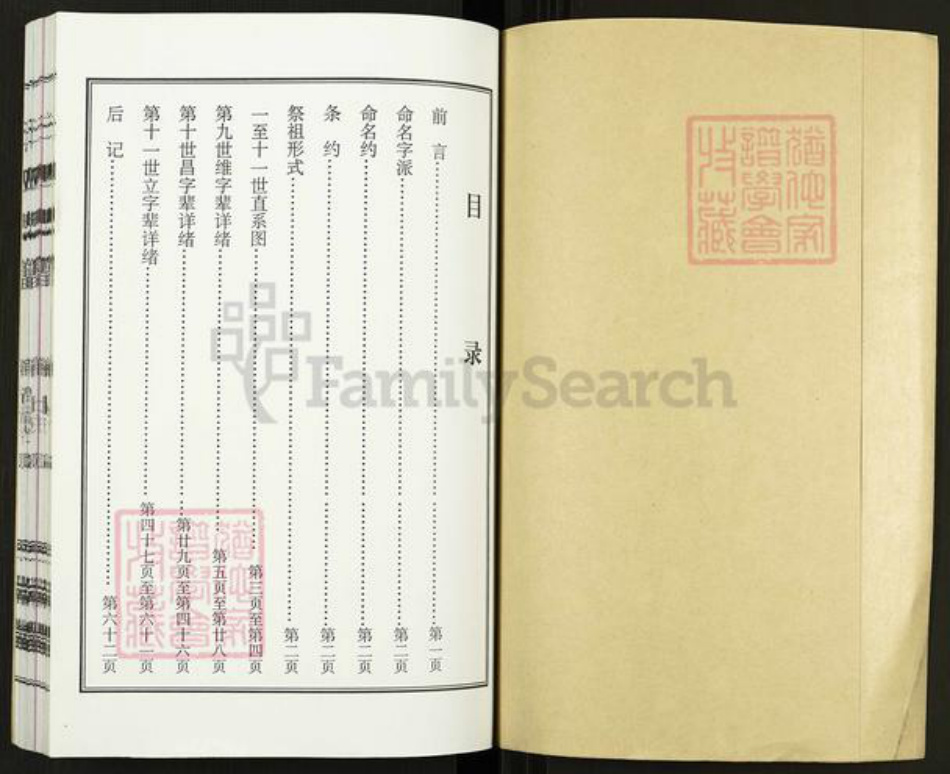 目录
前言……第一页
命名字派……第二页
命名约……第二页
条约……第二页
祭祖形式……第二页
一至十一世直系图……第三页至第四页
第九世维字辈详绪……第五页至第廿八页
第十世昌字辈详绪……第廿九页至第四十六页
第十一世立字辈详绪……第四十七页至第六十一页
后记……第六十二页
FamilySearch